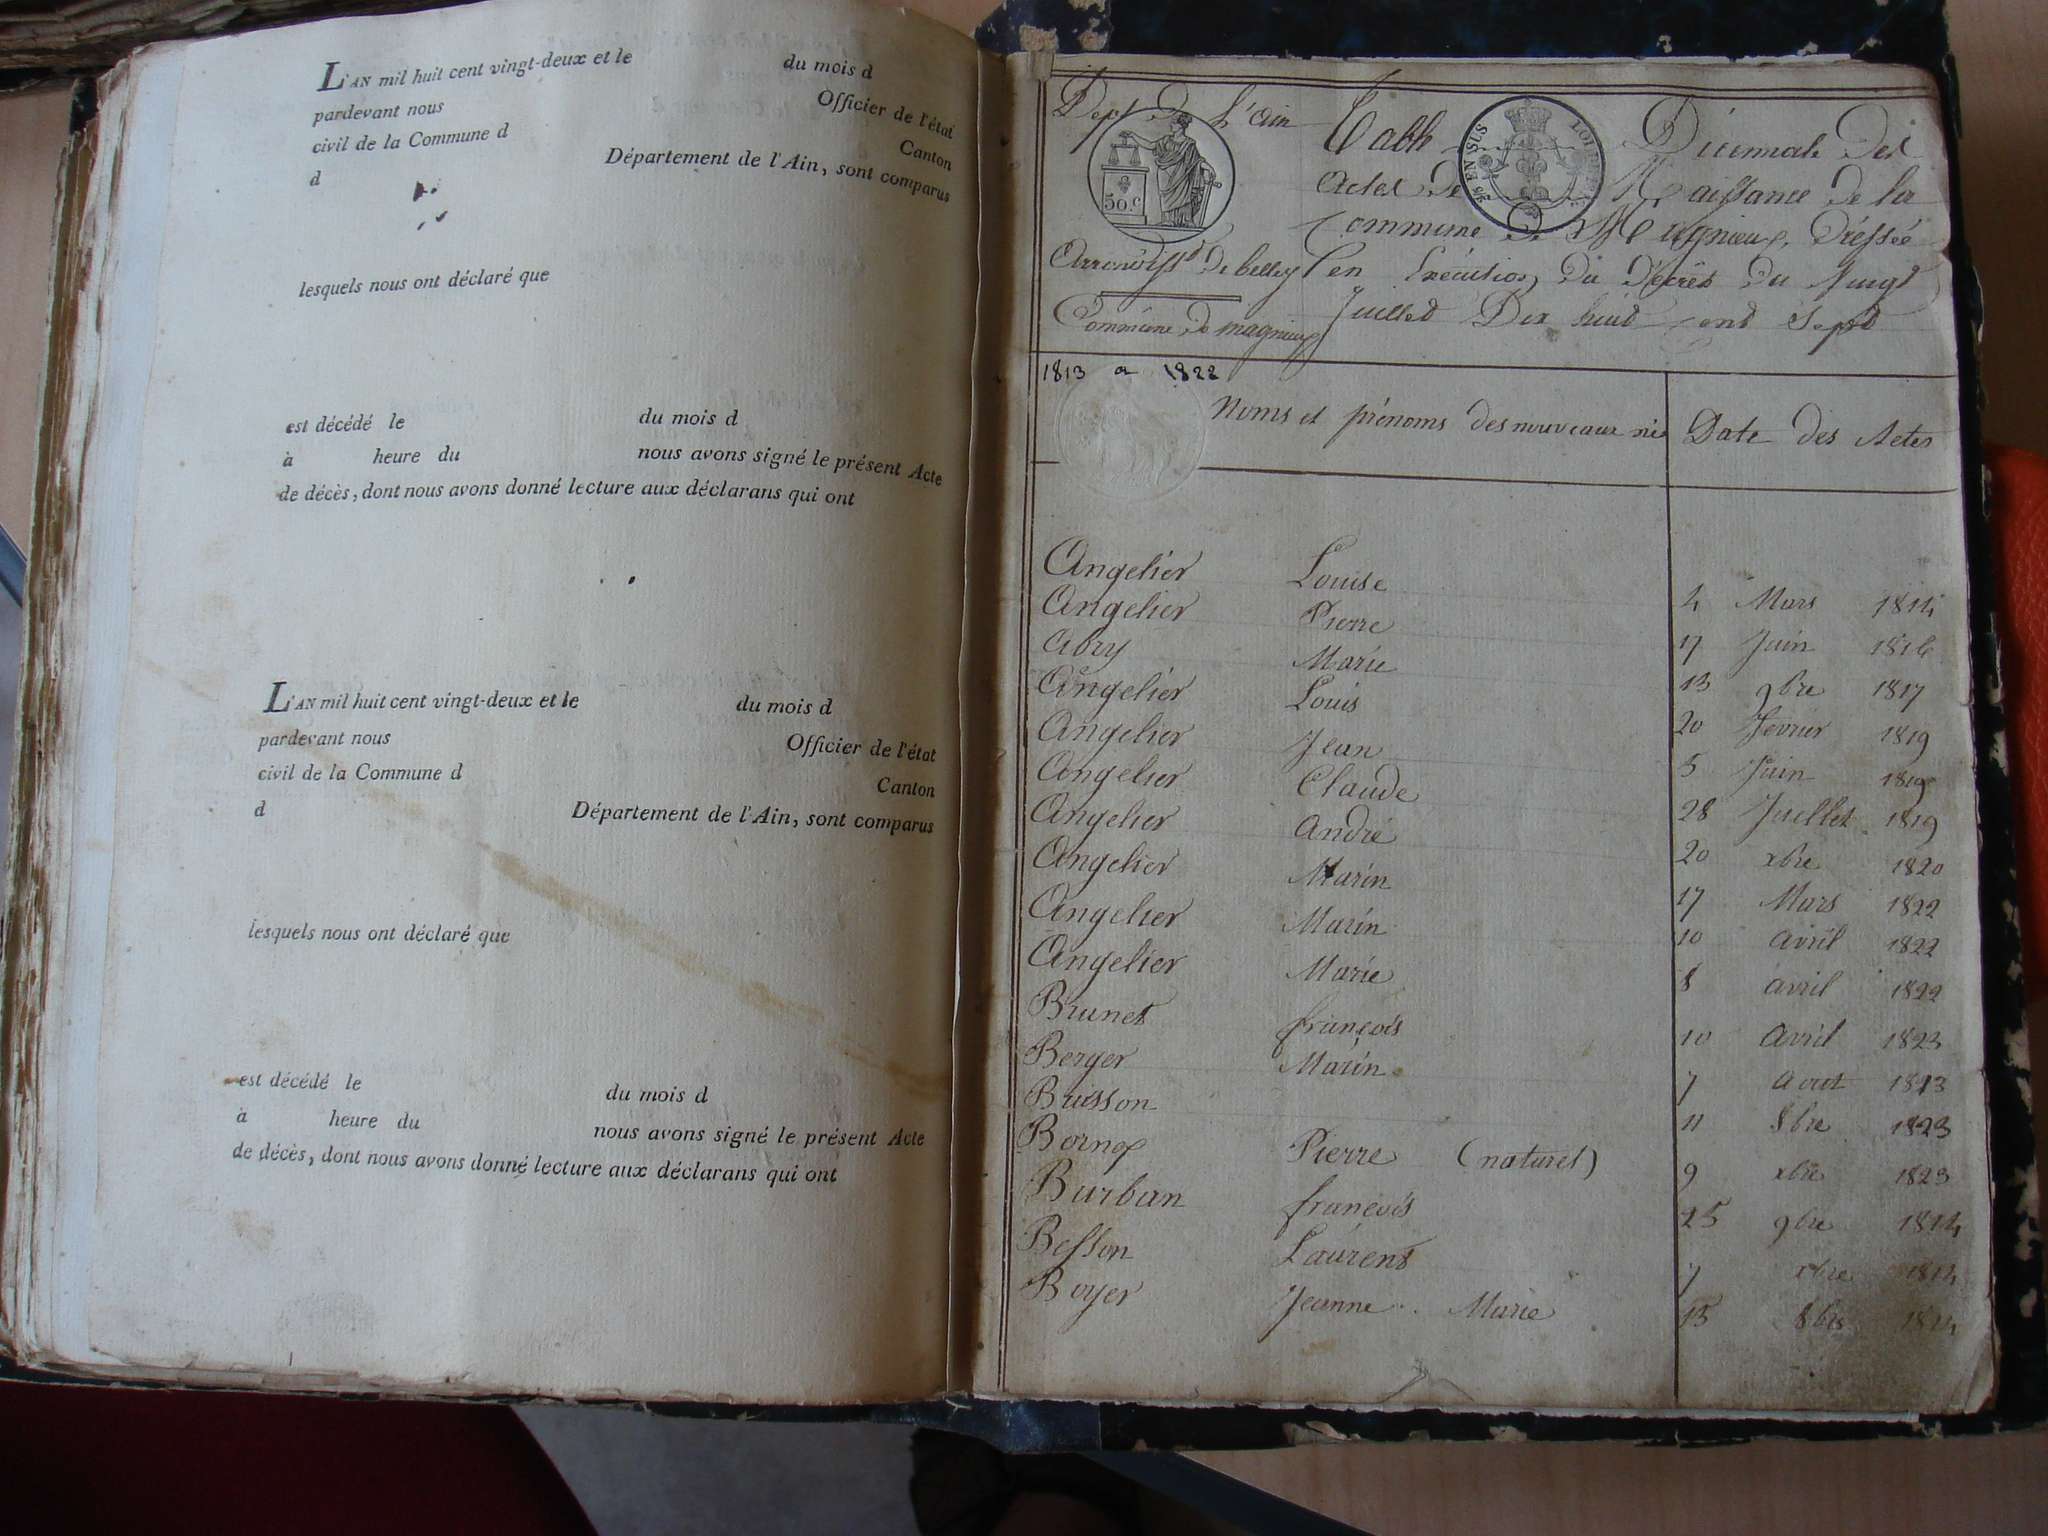 L'AN mil huit cent vingt-deux et le du mois d
pardevant nous Officier de l'état
civil de la Commune d Canton
d Département de l'Ain, sont comparus
lesquels nous ont déclaré que
est décédé le du mois d
à heure du nous avons signé le présent Acte
de décès, dont nous avons donné lecture aux déclarans qui ont
L'AN mil huit cent vingt-deux et le du mois d
pardevant nous Officier de l'état
civil de la Commune d Canton
d Département de l'Ain, sont comparus
lesquels nous ont déclaré que
est décédé le du mois d
à heure du nous avons signé le présent Acte
de décès, dont nous avons donné lecture aux déclarans qui ont
Dept de L'ain
50.c
Arrondisst de belley
Commune de magnieu
EN SUS
Table Décennale des
Actes de Naissance de la
Commune de Magnieu, dréssée
en Exécution du Décrêt du Vingt
Juillet Dix huit cent Sept
1813 a 1822
Noms et prénoms des nouveaux nés Date des Actes
Angelier Louise 4 Mars 1814
Angelier Pierre 17 Juin 1816
Abry Marie 13 9bre 1817
Angelier Louis 20 Fevrier 1819
Angelier Jean 5 Juin 1819
Angelier Claude 28 Juillet 1819
Angelier André 20 xbre 1820
Angelier Marin 17 Mars 1822
Angelier Marin 10 avril 1822
Angelier Marie 8 avril 1822
Brunet françois 10 Avril 1823
Berger Marin 7 Aout 1813
Buisson 11 8bre 1823
Pierre (naturel) 9 xbre 1823
Burban françois 25 9bre 1814
Besson Laurent 7 xbre 1814
Boyer Jeanne Marie 15 8bre